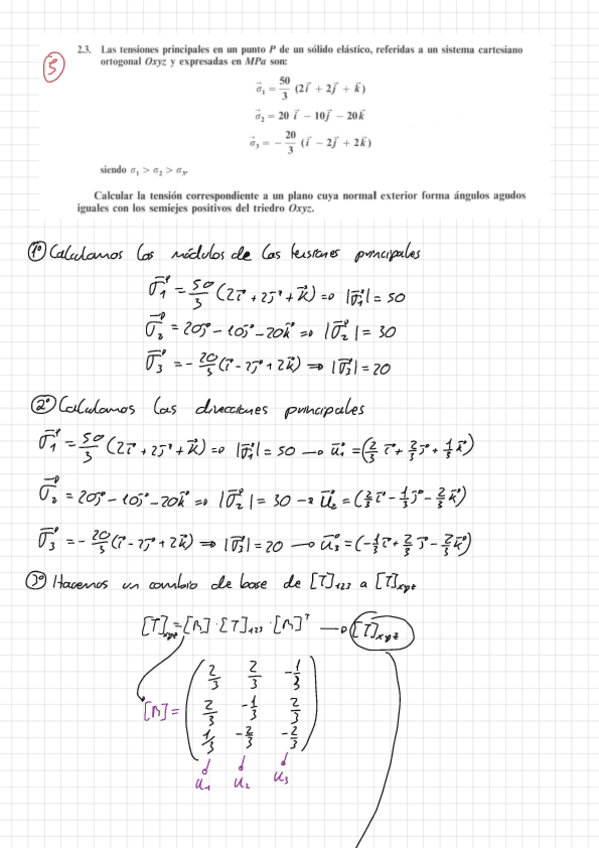 5
2.3. Las tensiones principales en un punto P de un sólido elástico, referidas a un sistema cartesiano
ortogonal Oxyz y expresadas en MPa son:
σ⃗₁ = 50/3 (2i⃗ + 2j⃗ + k⃗)
σ⃗₂ = 20 i⃗ − 10j⃗ − 20k⃗
σ⃗₃ = − 20/3 (i⃗ − 2j⃗ + 2k⃗)
siendo σ₁ > σ₂ > σ₃.
Calcular la tensión correspondiente a un plano cuya normal exterior forma ángulos agudos
iguales con los semiejes positivos del triedro Oxyz.
1º Calculamos los módulos de las tensiones principales
σ⃗₁ = 50/3 (2i⃗ + 2j⃗ + k⃗) => |σ⃗₁| = 50
σ⃗₂ = 20j⃗ − 10j⃗ − 20k⃗ => |σ⃗₂| = 30
σ⃗₃ = − 20/3 (i⃗ − 2j⃗ + 2k⃗) => |σ⃗₃| = 20
2º Calculamos las direcciones principales
σ⃗₁ = 50/3 (2i⃗ + 2j⃗ + k⃗) => |σ⃗₁| = 50 → u⃗₁ = (2/3 i⃗ + 2/3 j⃗ + 1/3 k⃗)
σ⃗₂ = 20j⃗ − 10j⃗ − 20k⃗ => |σ⃗₂| = 30 → u⃗₂ = (2/3 i⃗ − 1/3 j⃗ − 2/3 k⃗)
σ⃗₃ = − 20/3 (i⃗ − 2j⃗ + 2k⃗) => |σ⃗₃| = 20 → u⃗₃ = (−1/3 i⃗ + 2/3 j⃗ − 2/3 k⃗)
3º Hacemos un cambio de base de [T]₁₂₃ a [T]xyz
[T]xyz = [R] · [T]₁₂₃ · [R]ᵀ → [T]xyz
2/3 2/3 −1/3
[R] = 2/3 −1/3 2/3
1/3 −2/3 −2/3
u₁ u₂ u₃